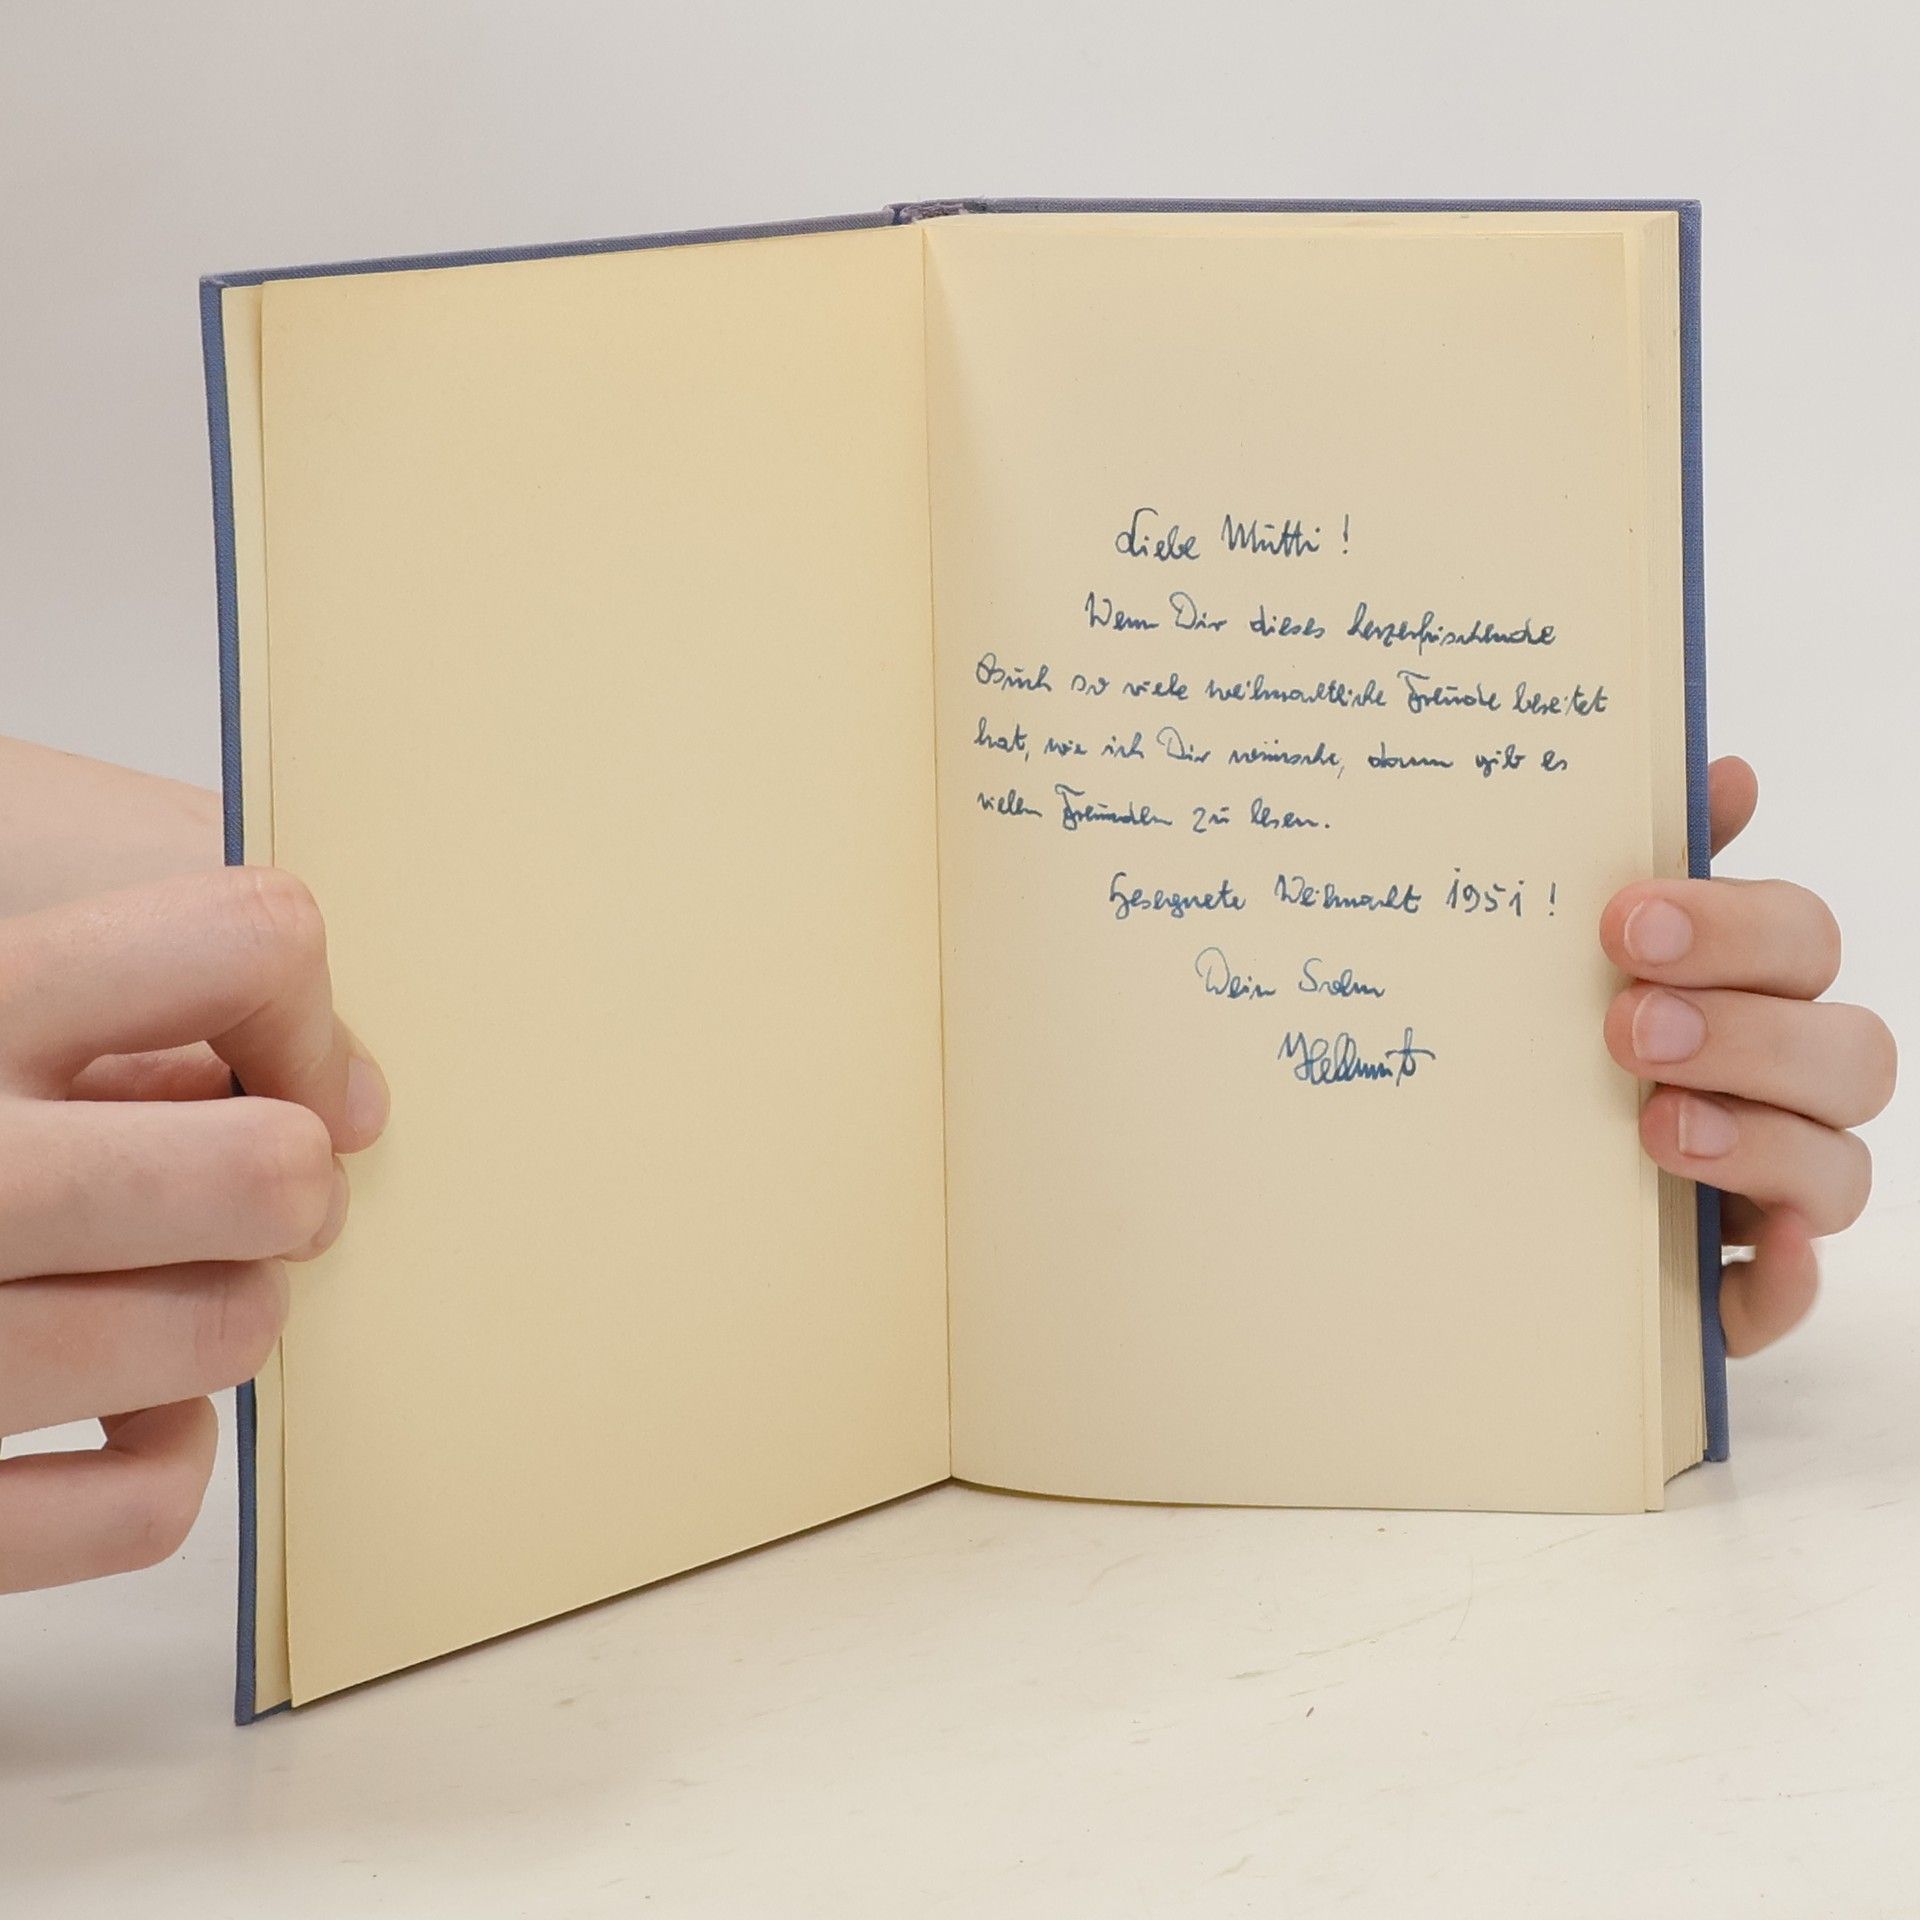 Liebe Mutti!
Wenn Dir dieses herzerfrischende
Buch so viele weihnachtliche Freude bereitet
hat, wie ich Dir wünsche, dann gib es
vielen Freunden zu lesen.
Gesegnete Weihnacht 1951!
Dein Sohn
Hellmut